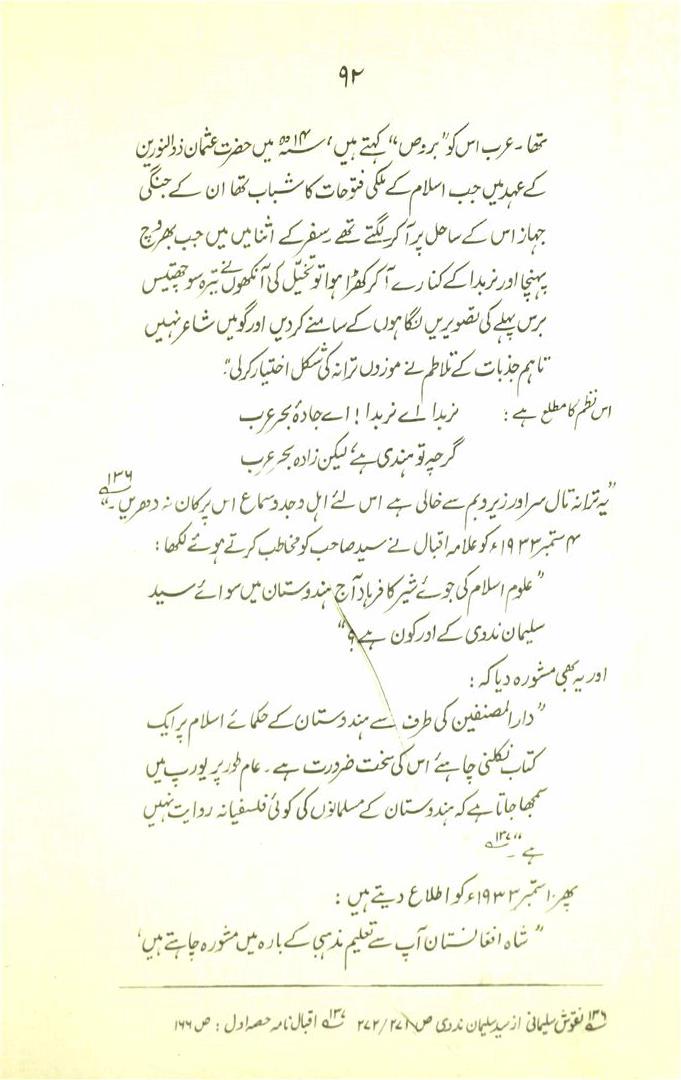 ۹۲
تھا۔ عرب اس کو ”بروص“ کہتے ہیں، ۱۴ھ میں حضرت عثمان ذوالنورین
کے عہد میں جب اسلام کے ملکی فتوحات کا شباب تھا ان کے جنگی
جہاز اس کے ساحل پر آ کر لگتے تھے۔ سفر کے اثنا میں میں جب بھروچ
پہنچا اور نربدا کے کنارے آ کر کھڑا ہوا تو تخیّل کی آنکھوں نے تیرہ سو چھتیس
برس پہلے کی تصویریں نگاہوں کے سامنے کردیں اور گو میں شاعر نہیں
تاہم جذبات کے تلاطم نے موزوں ترانہ کی شکل اختیار کرلی“۔
اس نظم کا مطلع ہے : نربدا اے نربدا ! اے جادۂ بحر عرب
گرچہ تو ہندی ہے، لیکن زادہ بحر عرب
”یہ ترانہ تال سر اور زیر و بم سے خالی ہے اس لئے اہل وجد و سماع اس پر کان نہ دھریں۔“ ۱۳۶
۴ ستمبر ۱۹۳۳ء کو علامہ اقبال نے سید صاحب کو مخاطب کرتے ہوئے لکھا :
”علوم اسلام کی جوئے شیر کا فرہاد آج ہندوستان میں سوائے سید
سلیمان ندوی کے اور کون ہے؟“
اور یہ بھی مشورہ دیا کہ :
”دارالمصنفین کی طرف سے ہندوستان کے حکمائے اسلام پر ایک
کتاب نکلنی چاہئے اس کی سخت ضرورت ہے۔ عام طور پر یورپ میں
سمجھا جاتا ہے کہ ہندوستان کے مسلمانوں کی کوئی فلسفیانہ روایت نہیں
ہے۔“ ۱۳۷
پھر ۱۰ ستمبر ۱۹۳۳ء کو اطلاع دیتے ہیں :
”شاہ افغانستان آپ سے تعلیم مذہبی کے بارہ میں مشورہ چاہتے ہیں،
۱۳۶ نقوش سلیمانی از سید سلیمان ندوی ص ۲۷۱/۲۷۲ ۱۳۷ اقبال نامہ حصہ اول : ص ۱۶۶